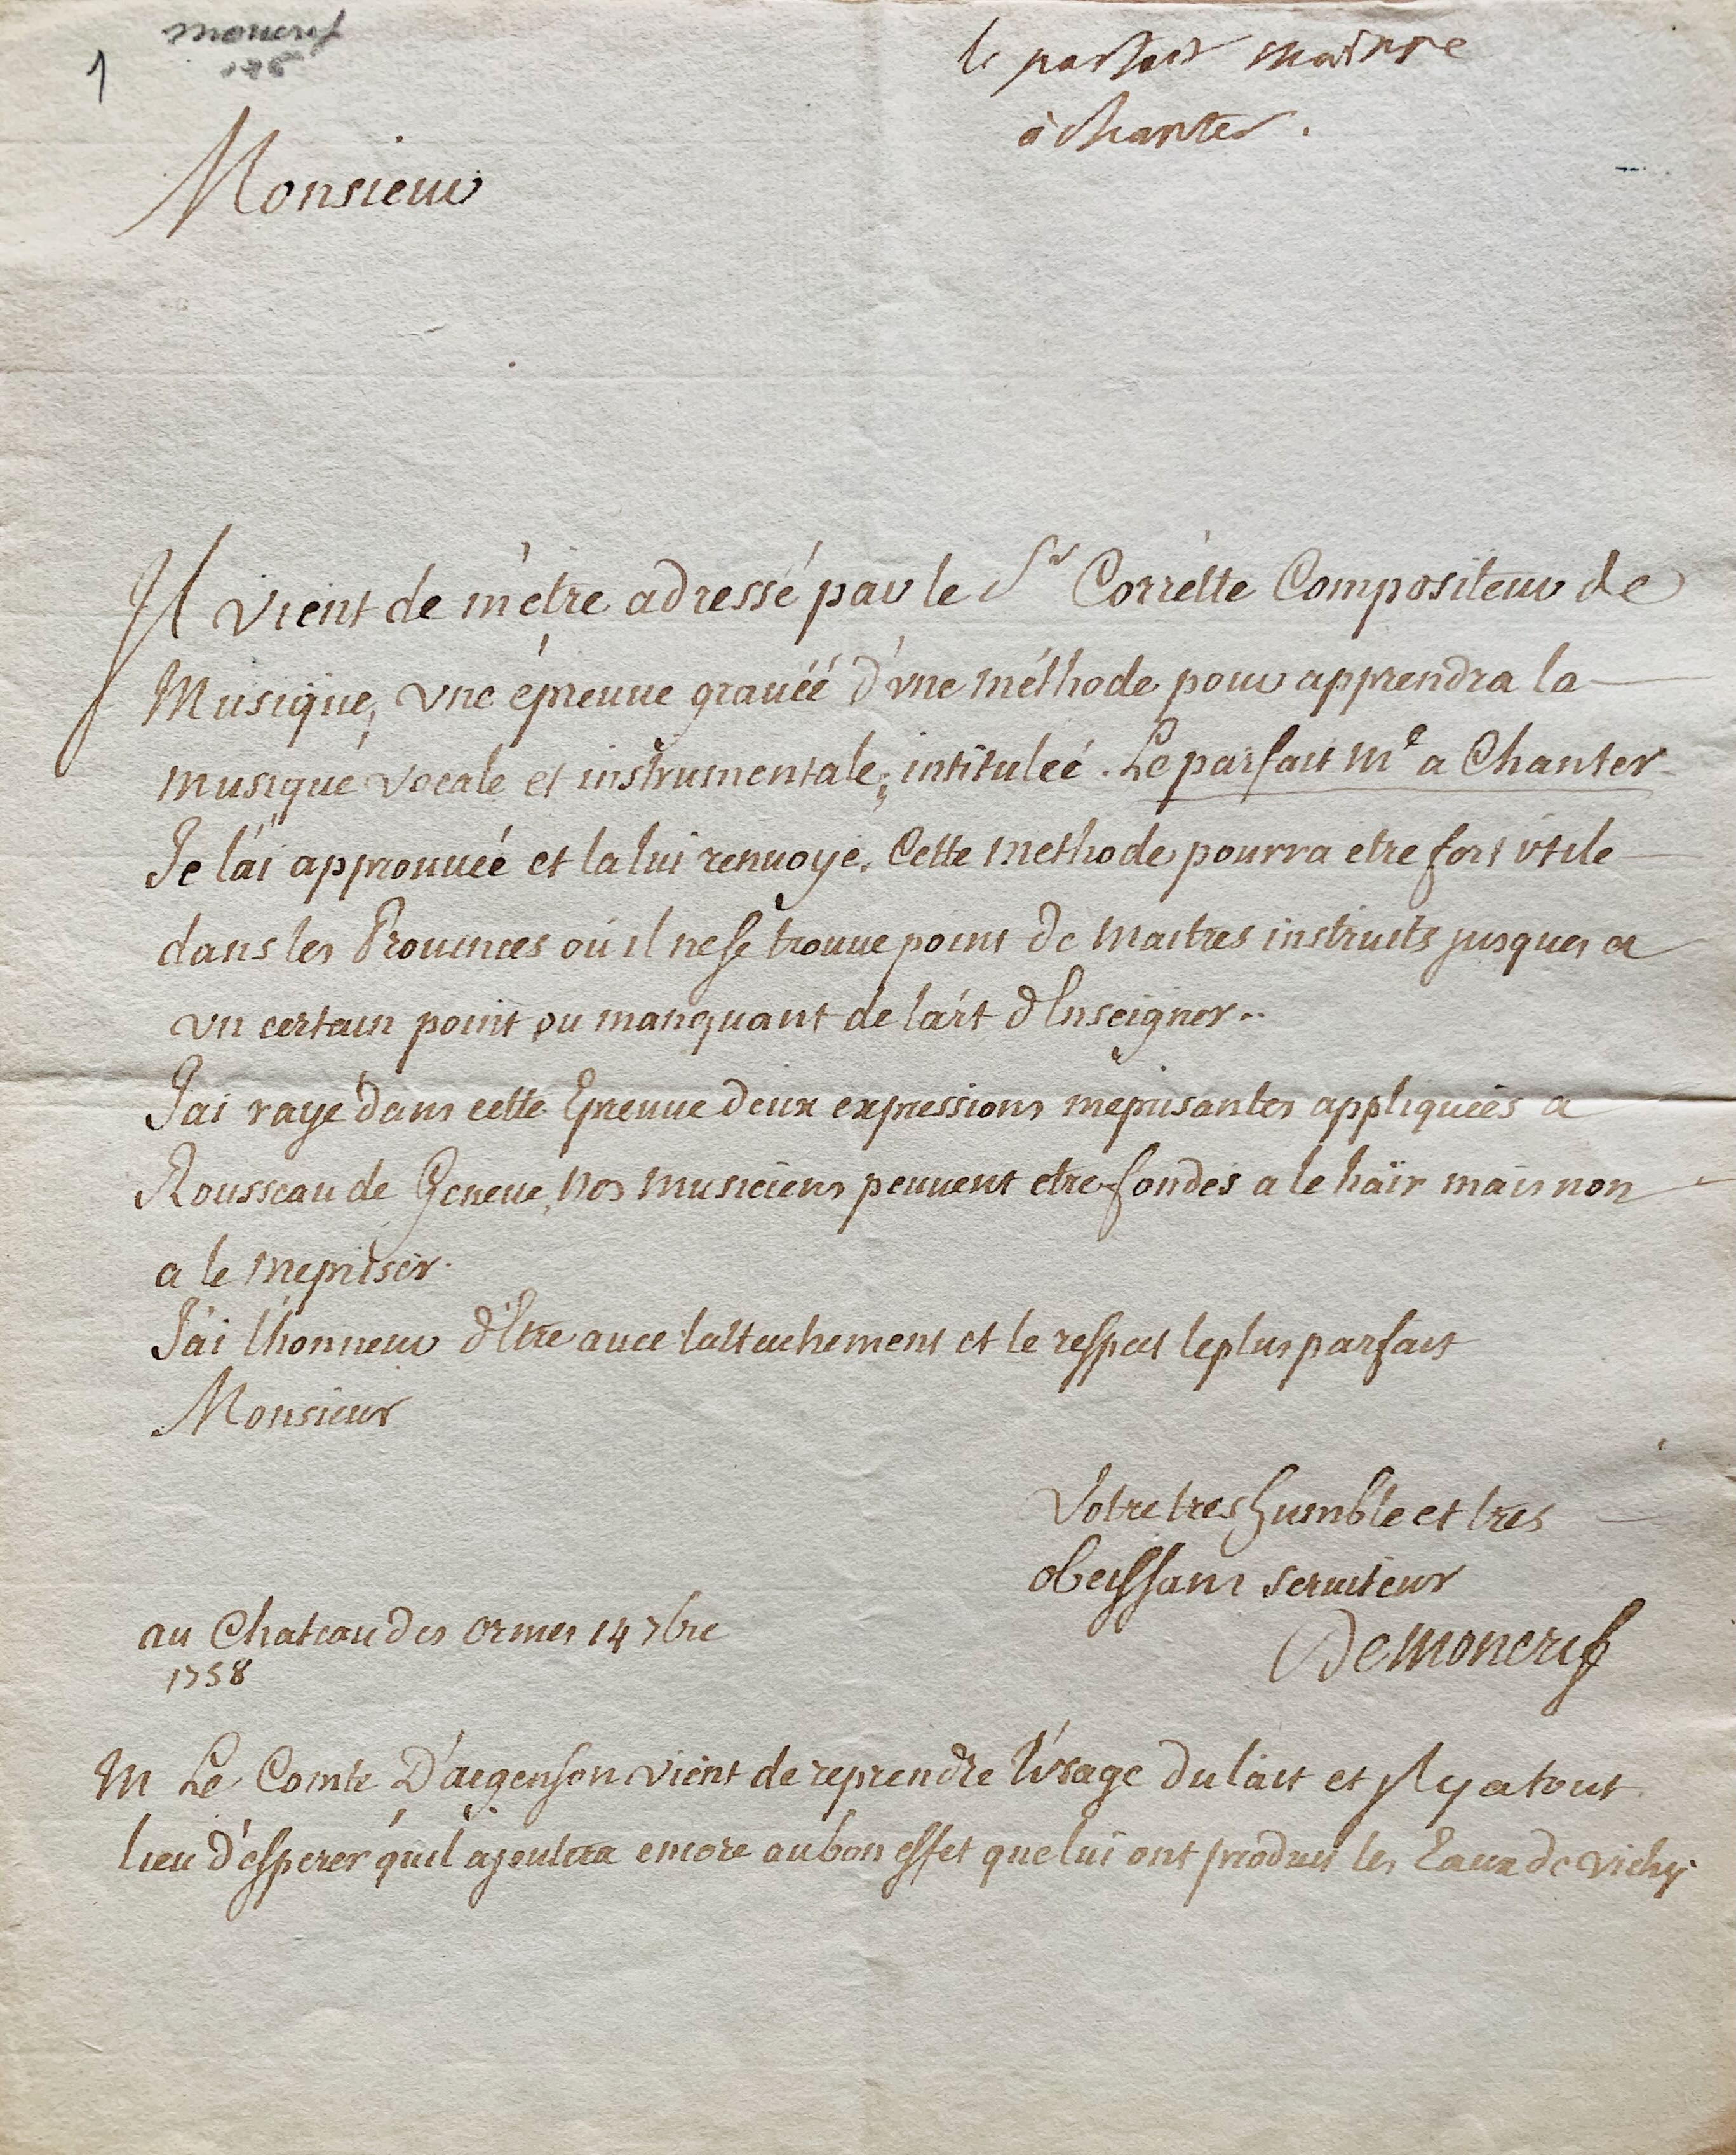 moncrif
1
le parfait maitre
à chanter.
Monsieur
Il vient de m'etre adressé par le Sr Corrette Compositeur de
Musique, vne épreuue grauéé d'vne méthode pour apprendra la
musique vocale et instrumentale, intituleé. Le parfait Me a Chanter
Je l'ai approuueé et la lui renuoye. Cette methode pourra etre fort vtile
dans les Prouinces où il ne se trouue point de Maitres instruits jusques a
vn certain point ou manquant de l'art d'Enseigner..
J'ai rayé dans cette Epreuue deux expressions meprisantes appliquées a
Rousseau de Geneue, nos musiciens peuuent etre fondés a le haïr mais non
a le mepriser.
J'ai l'honneur d'Etre auec l'attachement et le respect le plus parfait
Monsieur
Votre tres humble et tres
obeissant seruiteur
De moncrif
au Chateau des ormes 14 7bre
1758
M Le Comte D'argenson vient de reprendre l'vsage du lait et Il y a tout
lieu d'esperer qu'il ajoutera encore au bon effet que lui ont produit les Eaux de vichy